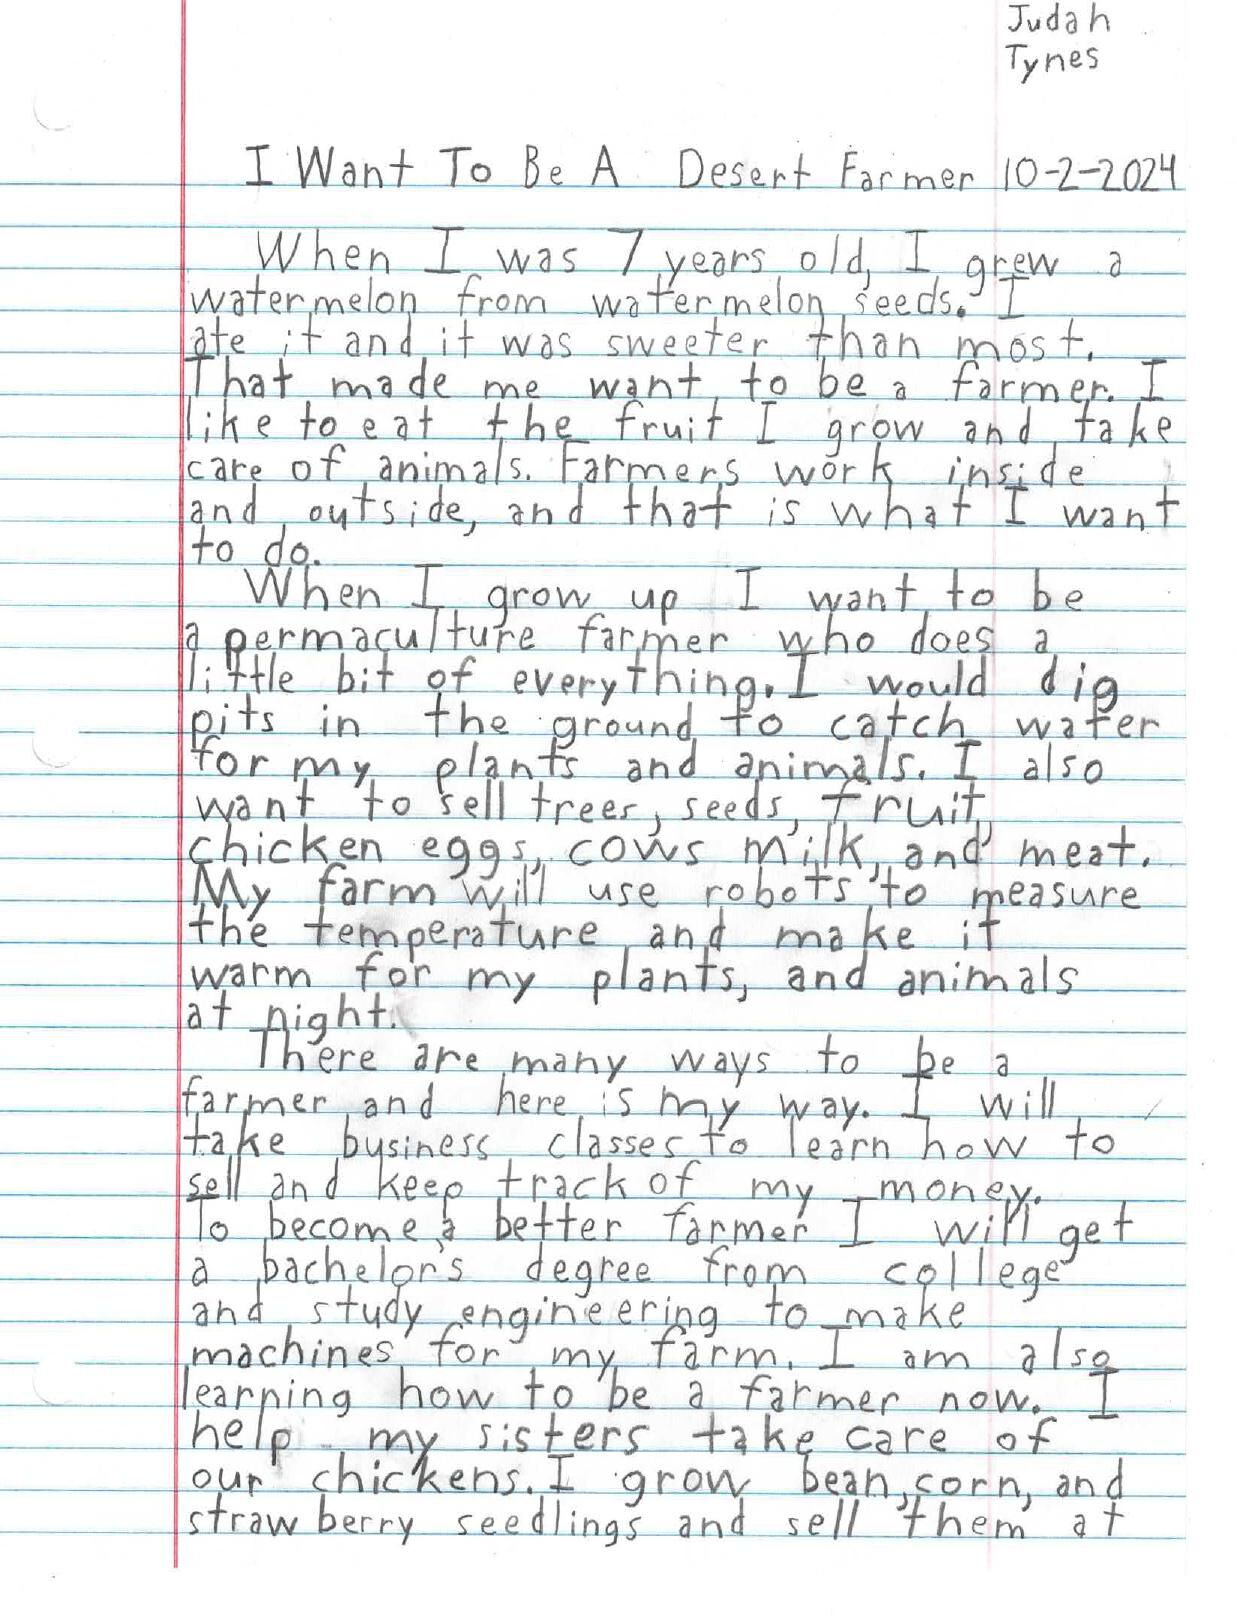 Judah
Tynes
I Want To Be A Desert Farmer 10-2-2024
When I was 7 years old, I grew a
watermelon from watermelon seeds. I
ate it and it was sweeter than most.
That made me want to be a farmer. I
like to eat the fruit I grow and take
care of animals. Farmers work inside
and outside, and that is what I want
to do.
When I grow up I want to be
a permaculture farmer who does a
little bit of everything. I would dig
pits in the ground to catch water
for my plants and animals. I also
want to sell trees, seeds, fruit,
chicken eggs, cows milk, and meat.
My farm will use robots to measure
the temperature and make it
warm for my plants, and animals
at night.
There are many ways to be a
farmer and here is my way. I will
take business classes to learn how to
sell and keep track of my money.
To become a better farmer I will get
a bachelor's degree from college
and study engineering to make
machines for my farm. I am also
learning how to be a farmer now. I
help my sisters take care of
our chickens. I grow bean, corn, and
strawberry seedlings and sell them at